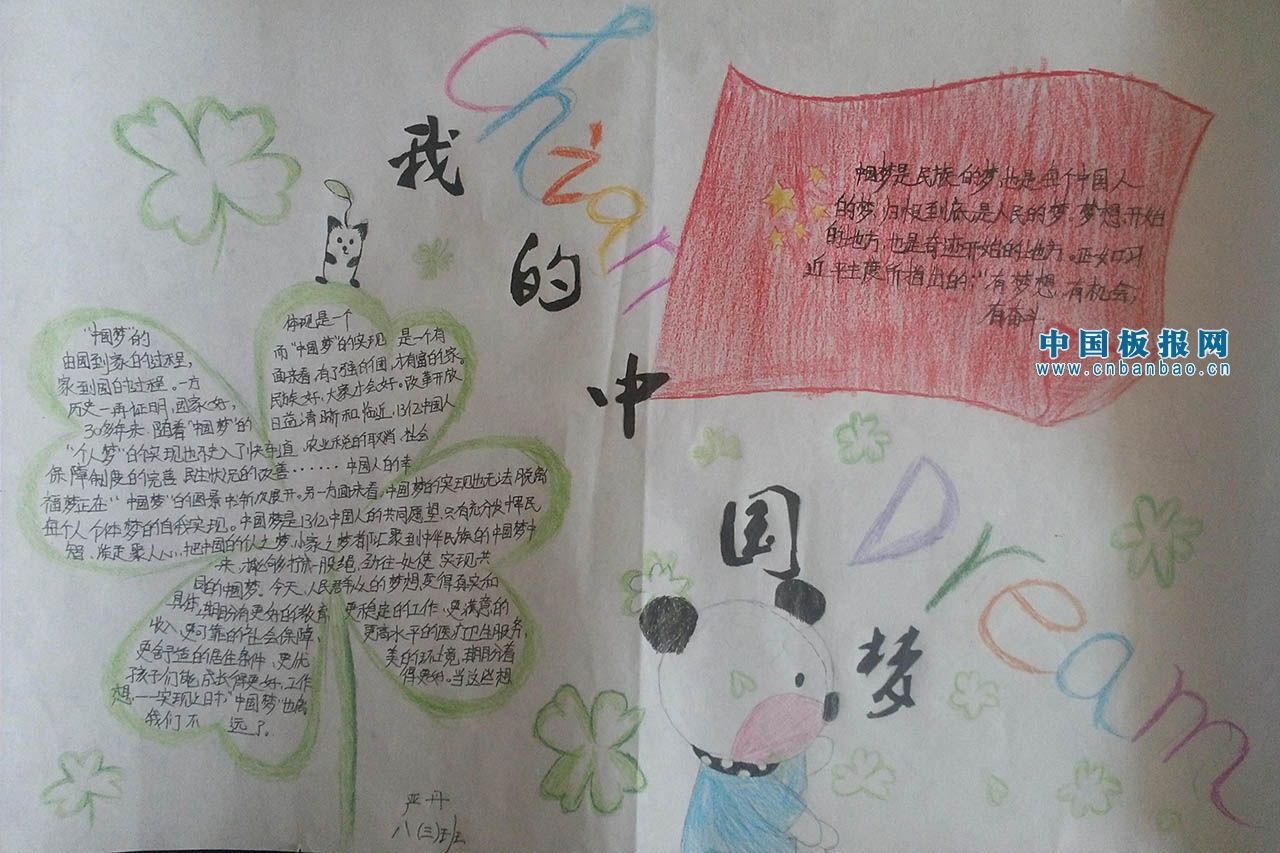 我的中国梦
Chinan
Dream
中国梦是民族的梦,也是每个中国人
的梦,归根到底是人民的梦,梦想开始
的地方,也是奇迹开始的地方。正如习
近平主席所指出的:“有梦想,有机会,
有奋斗
中国板报网
www.cnbanbao.cn
“中国梦”的 体现是一个
由国到家的过程, 而“中国梦”的实现 是一个有
家到国的过程。一方 面来看,有了强的国,才有富的家。
历史一再证明,国家好, 民族好,大家才会好。改革开放
30多年来,随着“中国梦”的 日益清晰和临近,13亿中国人
“个人梦”的实现也驶入了快车道,农业税的取消,社会
保障制度的完善,民生状况的改善……中国人的幸
福梦正在“中国梦”的图景中渐次展开。另一方面来看,中国梦的实现也无法脱离
每个人个体梦的自我实现。中国梦是13亿中国人的共同愿望,只有充分发挥民
智、凝聚人心,把中国的个人之梦、小家之梦都汇聚到中华民族的中国梦中
来,才能够拧成一股绳,劲往一处使,实现共
同的中国梦。今天,人民群众的梦想变得真实而
具体,期盼有更好的教育 更稳定的工作、更满意的
收入、更可靠的社会保障、 更高水平的医疗卫生服务,
更舒适的居住条件、更优 美的环境,期盼着
孩子们能成长得更好、工作 得更好。当这些梦想
想一一实现之日,“中国梦”也离
我们不远了。
严丹
八(三)班